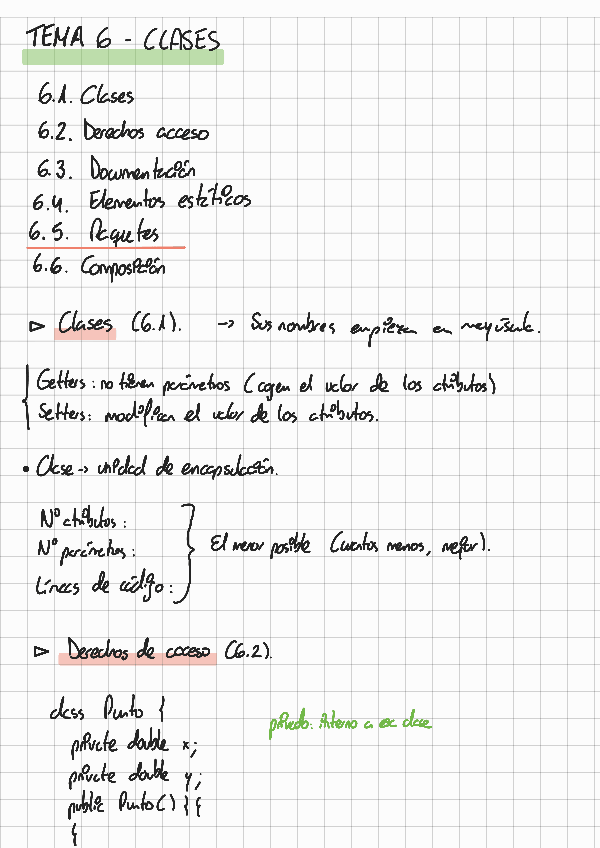 TEMA 6 - CLASES
6.1. Clases
6.2. Derechos acceso
6.3. Documentación
6.4. Elementos estáticos
6.5. Paquetes
6.6. Composición
▷ Clases (6.1). → Sus nombres empiezan en mayúscula.
Getters: no tienen parámetros (cogen el valor de los atributos)
Setters: modifican el valor de los atributos.
• Clase → unidad de encapsulación.
Nº atributos:
Nº parámetros:
Líneas de código:
El menor posible (cuantos menos, mejor).
▷ Derechos de acceso (6.2).
class Punto {
private double x;
private double y;
public Punto() { {
{
privado: interno a esa clase